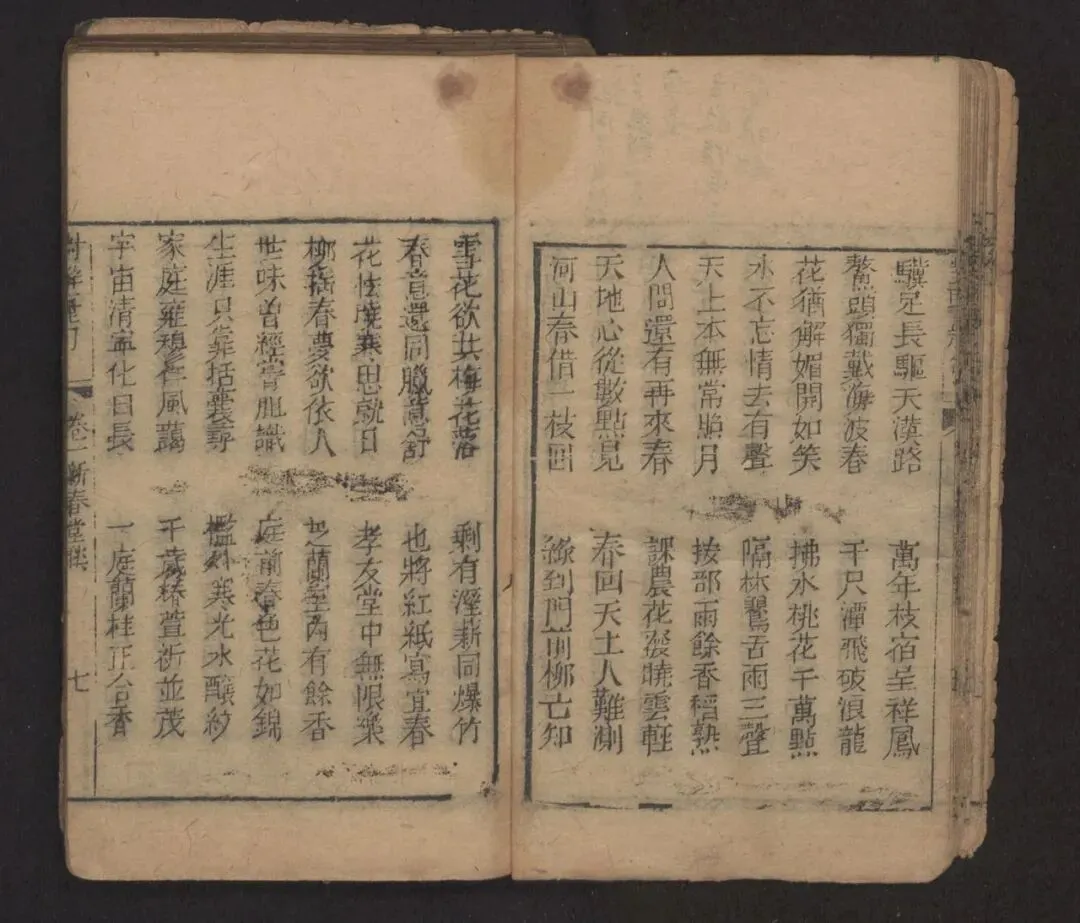 驥足長驅天漢路 萬年枝宿呈祥鳳
鰲頭獨戴海波春 千尺潭飛破浪龍
花猶解媚開如笑 拂水桃花千萬點
水不忘情去有聲 隔林鸎舌雨三聲
天上本無常照月 按部雨餘香稻熟
人間還有再來春 課農花凝曉雲輕
天地心從數點見 春回天上人難測
河山春借一枝回 綠到門前柳已知
雪花欲共梅花落 剩有溼薪同爆竹
春意還同臘意舒 也將紅紙寫宜春
花怯曉寒思就日 孝友堂中無限樂
柳搖春夢欲依人 芝蘭室內有餘香
世味曾經嘗胆識 庭前春色花如錦
生涯只靠括囊尋 檻外寒光水
家庭雍穆仁風藹 千歲椿萱祈並茂
宇宙清寧化日長 一庭蘭桂正合香
卷一 新春堂聯 七